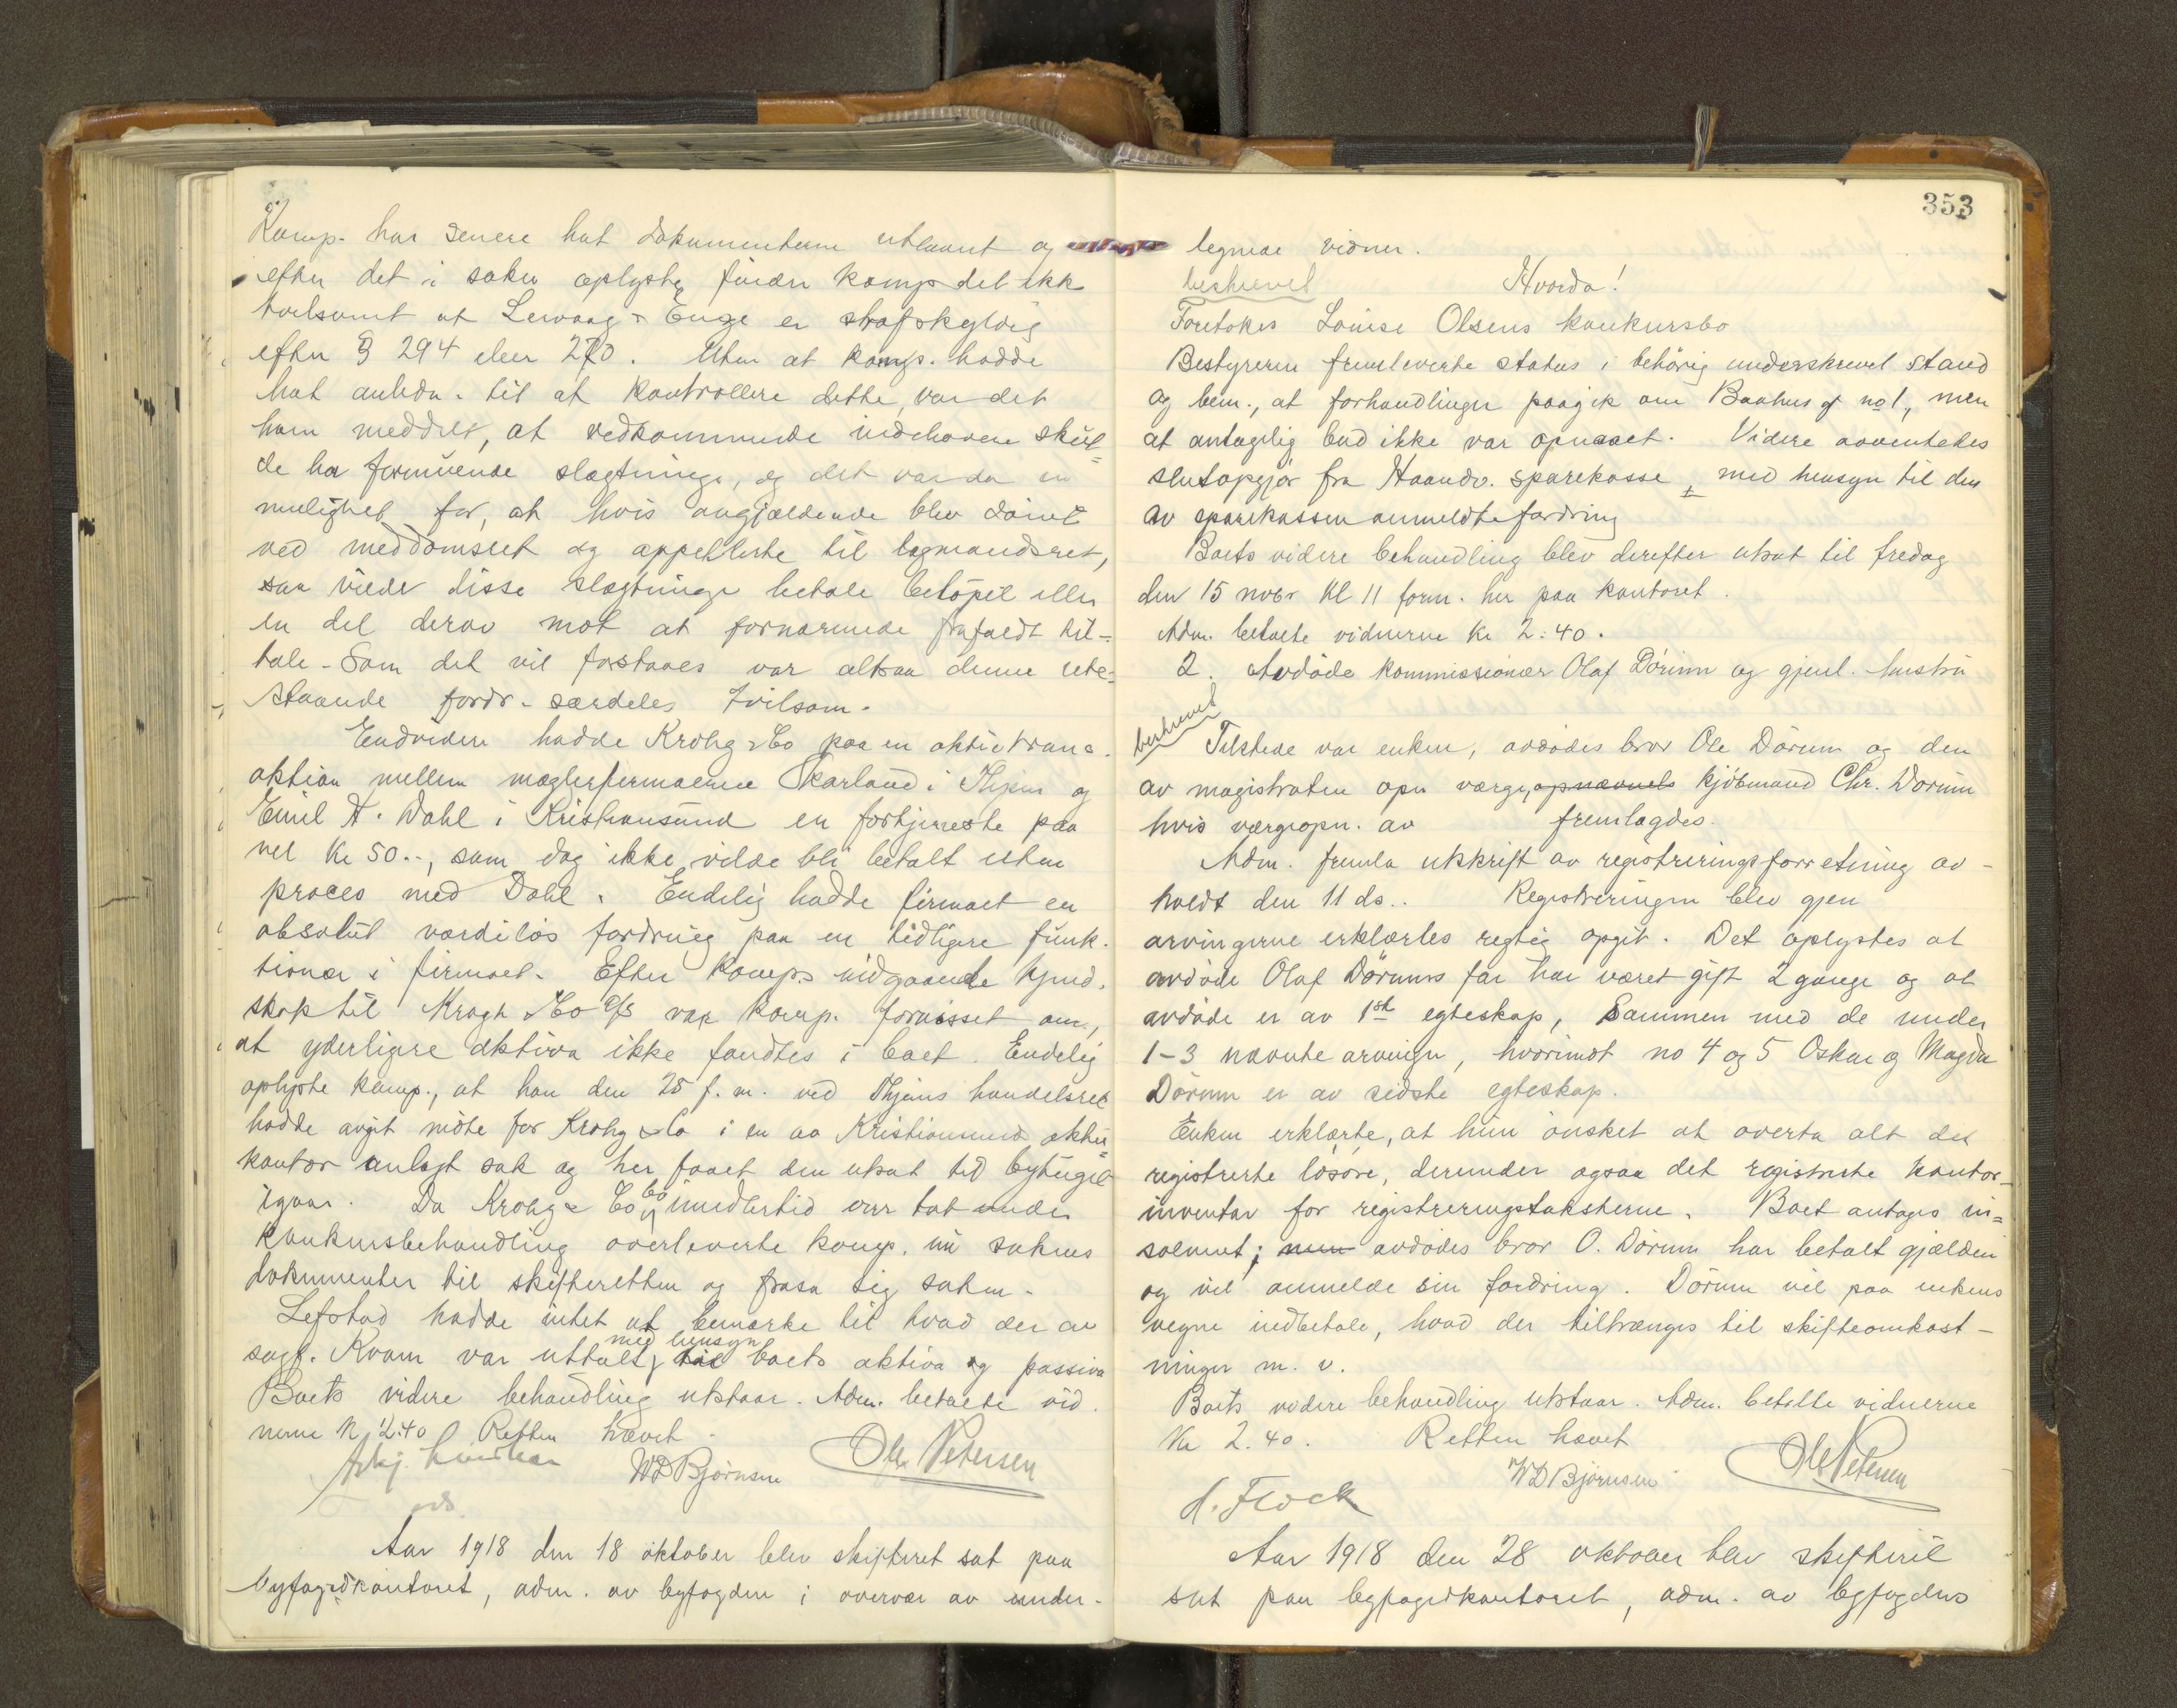 Komp. har senere hat dokumenterne utlaant og
efter det i saken oplyste finder komp det ikke
tvilsomt at Lervaag & Enge er strafskyldig
efter § 294 eller 270. Uten at komp. hadde
hat anledn. til at kontrollere dette, var det
ham meddelt, at vedkommende indehavere skul=
de ha formuende slægtninge, og det var da en
mulighet for, at hvis angjældende blev dømt
ved meddomsret og appellerte til lagmandsret,
saa vilde disse slægtninge betale beløpet eller
en del derav mot at fornærmede frafaldt til=
tale. Som det vil forstaaes var altsaa denne ute=
staaende fordr. særdeles tvilsom.
Endvidere hadde Krohg & Co paa en aktietrans-
aktion mellem mæglerfirmaerne Skarland i Thjem og
Emil A. Dahl i Kristiansund en fortjeneste paa
vel kr 50.-, som dog ikke vilde bli betalt uten
proces med Dahl. Endelig hadde firmaet en
absolut værdiløs fordring paa en tidligere funk-
tionær i firmaet. Efter komp.s indgaaende kjend-
skap til Krogh & Co A/S var komp. forvisset om,
at yderligere aktiva ikke fandtes i boet. Endelig
oplyste komp., at han den 25 f. m. ved Thjems handelsret
hadde avgit møte for Krohg & Co i en av Kristiansund aktie=
kontor anlagt sak og her faaet den utsat til bytinget
igaar. Da Krohg & Co bo imidlertid var tat under
konkursbehandling overleverte komp. nu sakens
dokumenter til skifteretten og frasa sig saken.
Lefstad hadde intet at bemærke til hvad der av
sagf. Kvam var uttalt med hensyn til boets aktiva og passiva
Boets videre behandling utstaar. Adm. betalte vid-
nerne kr 2.40 Retten hævet.
WD Bjørnsen Ole Petersen
Aar 1918 den 18 oktober blev skifteret sat paa
byfogedkontoret, adm. av byfogden i overvær av under-
353
tegnede vidner.
beskrevet Hvorda!
Foretokes Louise Olsens konkursbo
Bestyreren fremleverte status i behörig underskrevet stand
og bem., at forhandlinger paagik om Baahus g no 1, men
at antagelig bud ikke var opnaaet. Videre avventedes
slutopgjør fra Haandv. sparekasse, med hensyn til den
av sparekassen anmeldte fordring
Boets videre behandling blev derefter utsat til fredag
den 15 novbr kl 11 form. her paa kontoret.
Adm. betalte vidnerne kr 2.40.
2. Avdøde kommissionær Olaf Dörum og gjenl. hustru
beskrevet
Tilstede var enken, avdødes bror Ole Dörum og den
av magistraten opn værge, opnævnels kjøbmand Chr. Dorum
hvis værgeopn. av fremlagdes.
Adm. fremla utskrift av registreringsforretning av-
holdt den 11 ds.. Registreringen blev gjen
arvingerne erklærtes rigtig opgit. Det oplystes at
avdøde Olaf Dörums far har været gift 2 gange og at
avdøde er av 1ste egteskap, sammen med de under
1-3 nævnte arvinger, hvorimot no 4 og 5 Oskar og Magda
Dörum er av sidste egteskap.
Enken erklærte, at hun ønsket at overta alt det
registrerte løsøre, derunder ogsaa det registrerte kontor-
inventar for registreringstaksterne. Boet antages in=
solvent; men avdødes bror O. Dörum har betalt gjælden
og vil anmelde sin fordring. Dörum vil paa enkens
vegne indbetale, hvad der tiltrænges til skifteomkost-
ninger m. v.
Boets videre behandling utstaar. Adm. betalte vidnerne
kr 2.40. Retten hævet
WD Bjørnsen Ole Petersen
A. Flock
Aar 1918 den 28 oktober blev skifteret
sat paa byfogedkontoret, adm. av byfogdens